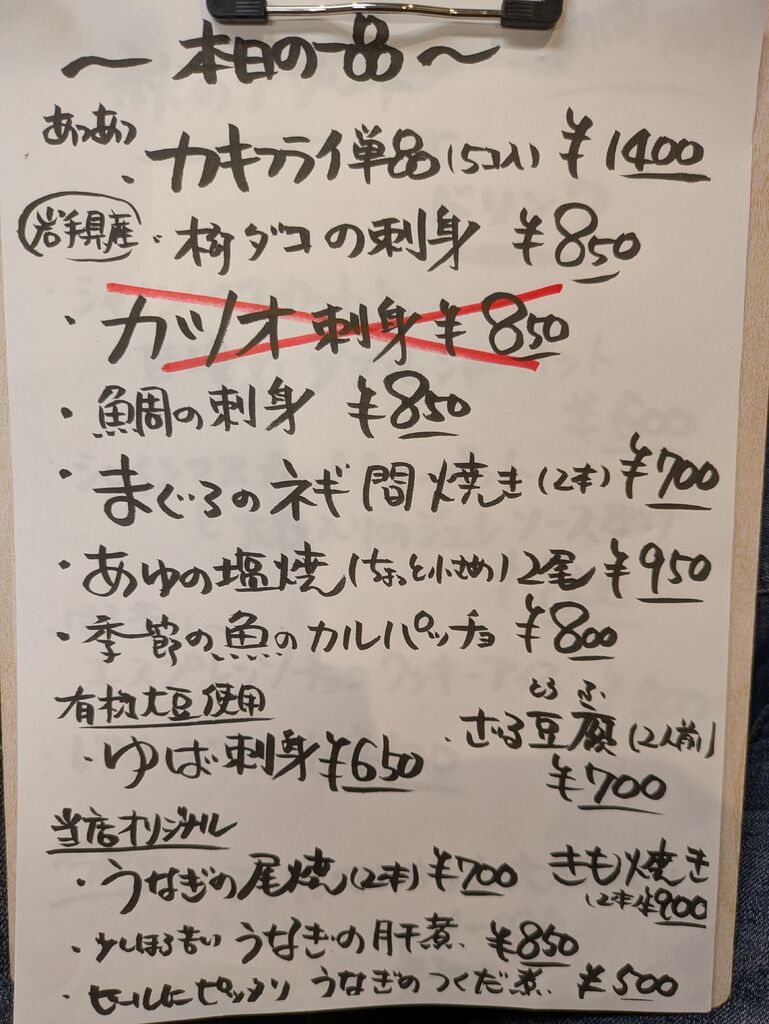 ～ 本日の一品 ～
あつあつ
・カキフライ単品(5コ入) ¥1400
岩手県産 ・柳ダコの刺身 ¥850
・カツオ刺身 ¥850
・鯛の刺身 ¥850
・まぐろのネギ間焼き(2本) ¥700
・あゆの塩焼(ちょっと小さめ)2尾 ¥950
・季節の魚のカルパッチョ ¥800
有機大豆使用
・ゆば刺身 ¥650
とうふ
・ざる豆腐(2人前)
¥700
当店オリジナル
・うなぎの尾焼(2本) ¥700
きも焼き
(2本)¥900
・少しほろ苦い うなぎの肝煮、 ¥850
・ビールにピッタリ うなぎのつくだ煮、 ¥500